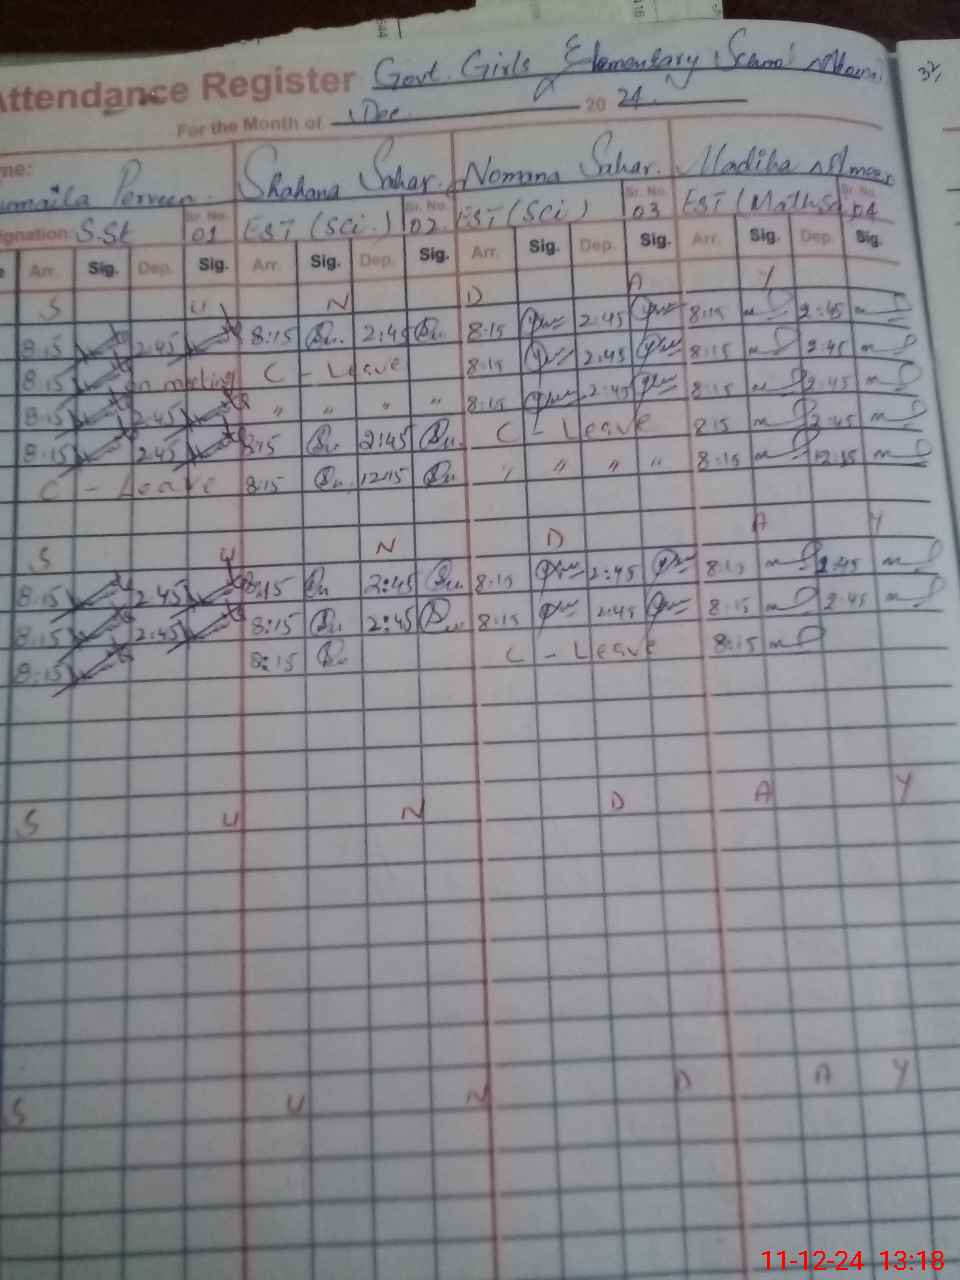 Attendance Register Govt. Girls Elementary School
For the Month of Dec. 20 24.
Name: Parveen. Shahana Sahar. Nomana Sahar. Madiha
Designation S.St Sr. No. 01 EST (Sci.) Sr. No. 02 EST (Sci) Sr. No. 03 EST (Math Sci) Sr. No. 04
Arr. Sig. Dep. Sig. Arr. Sig. Dep. Sig. Arr. Sig. Dep. Sig. Arr. Sig. Dep. Sig.
S U N D A Y
8:15 2:45 8:15 2:45 8:15 2:45 8:15 2:45
8:15 on meeting C - Leave 8:15 2:45 8:15 2:45
8:15 2:45 " " " " 8:15 2:45 8:15 2:45
8:15 2:45 8:15 2:45 C - Leave 8:15 2:45
C - Leave 8:15 12:15 " " " " 8:15 12:15
S U N D A Y
8:15 2:45 8:15 2:45 8:15 2:45 8:15 2:45
8:15 2:45 8:15 2:45 8:15 2:45 8:15 2:45
8:15 8:15 C - Leave 8:15
S U N D A Y
S U N D A Y
11-12-24 13:18